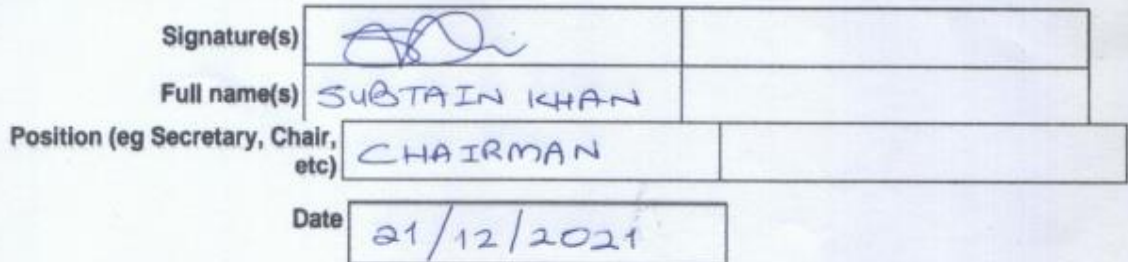 Signature(s)
Full name(s) SUBTAIN KHAN
Position (eg Secretary, Chair,
etc) CHAIRMAN
Date 21/12/2021